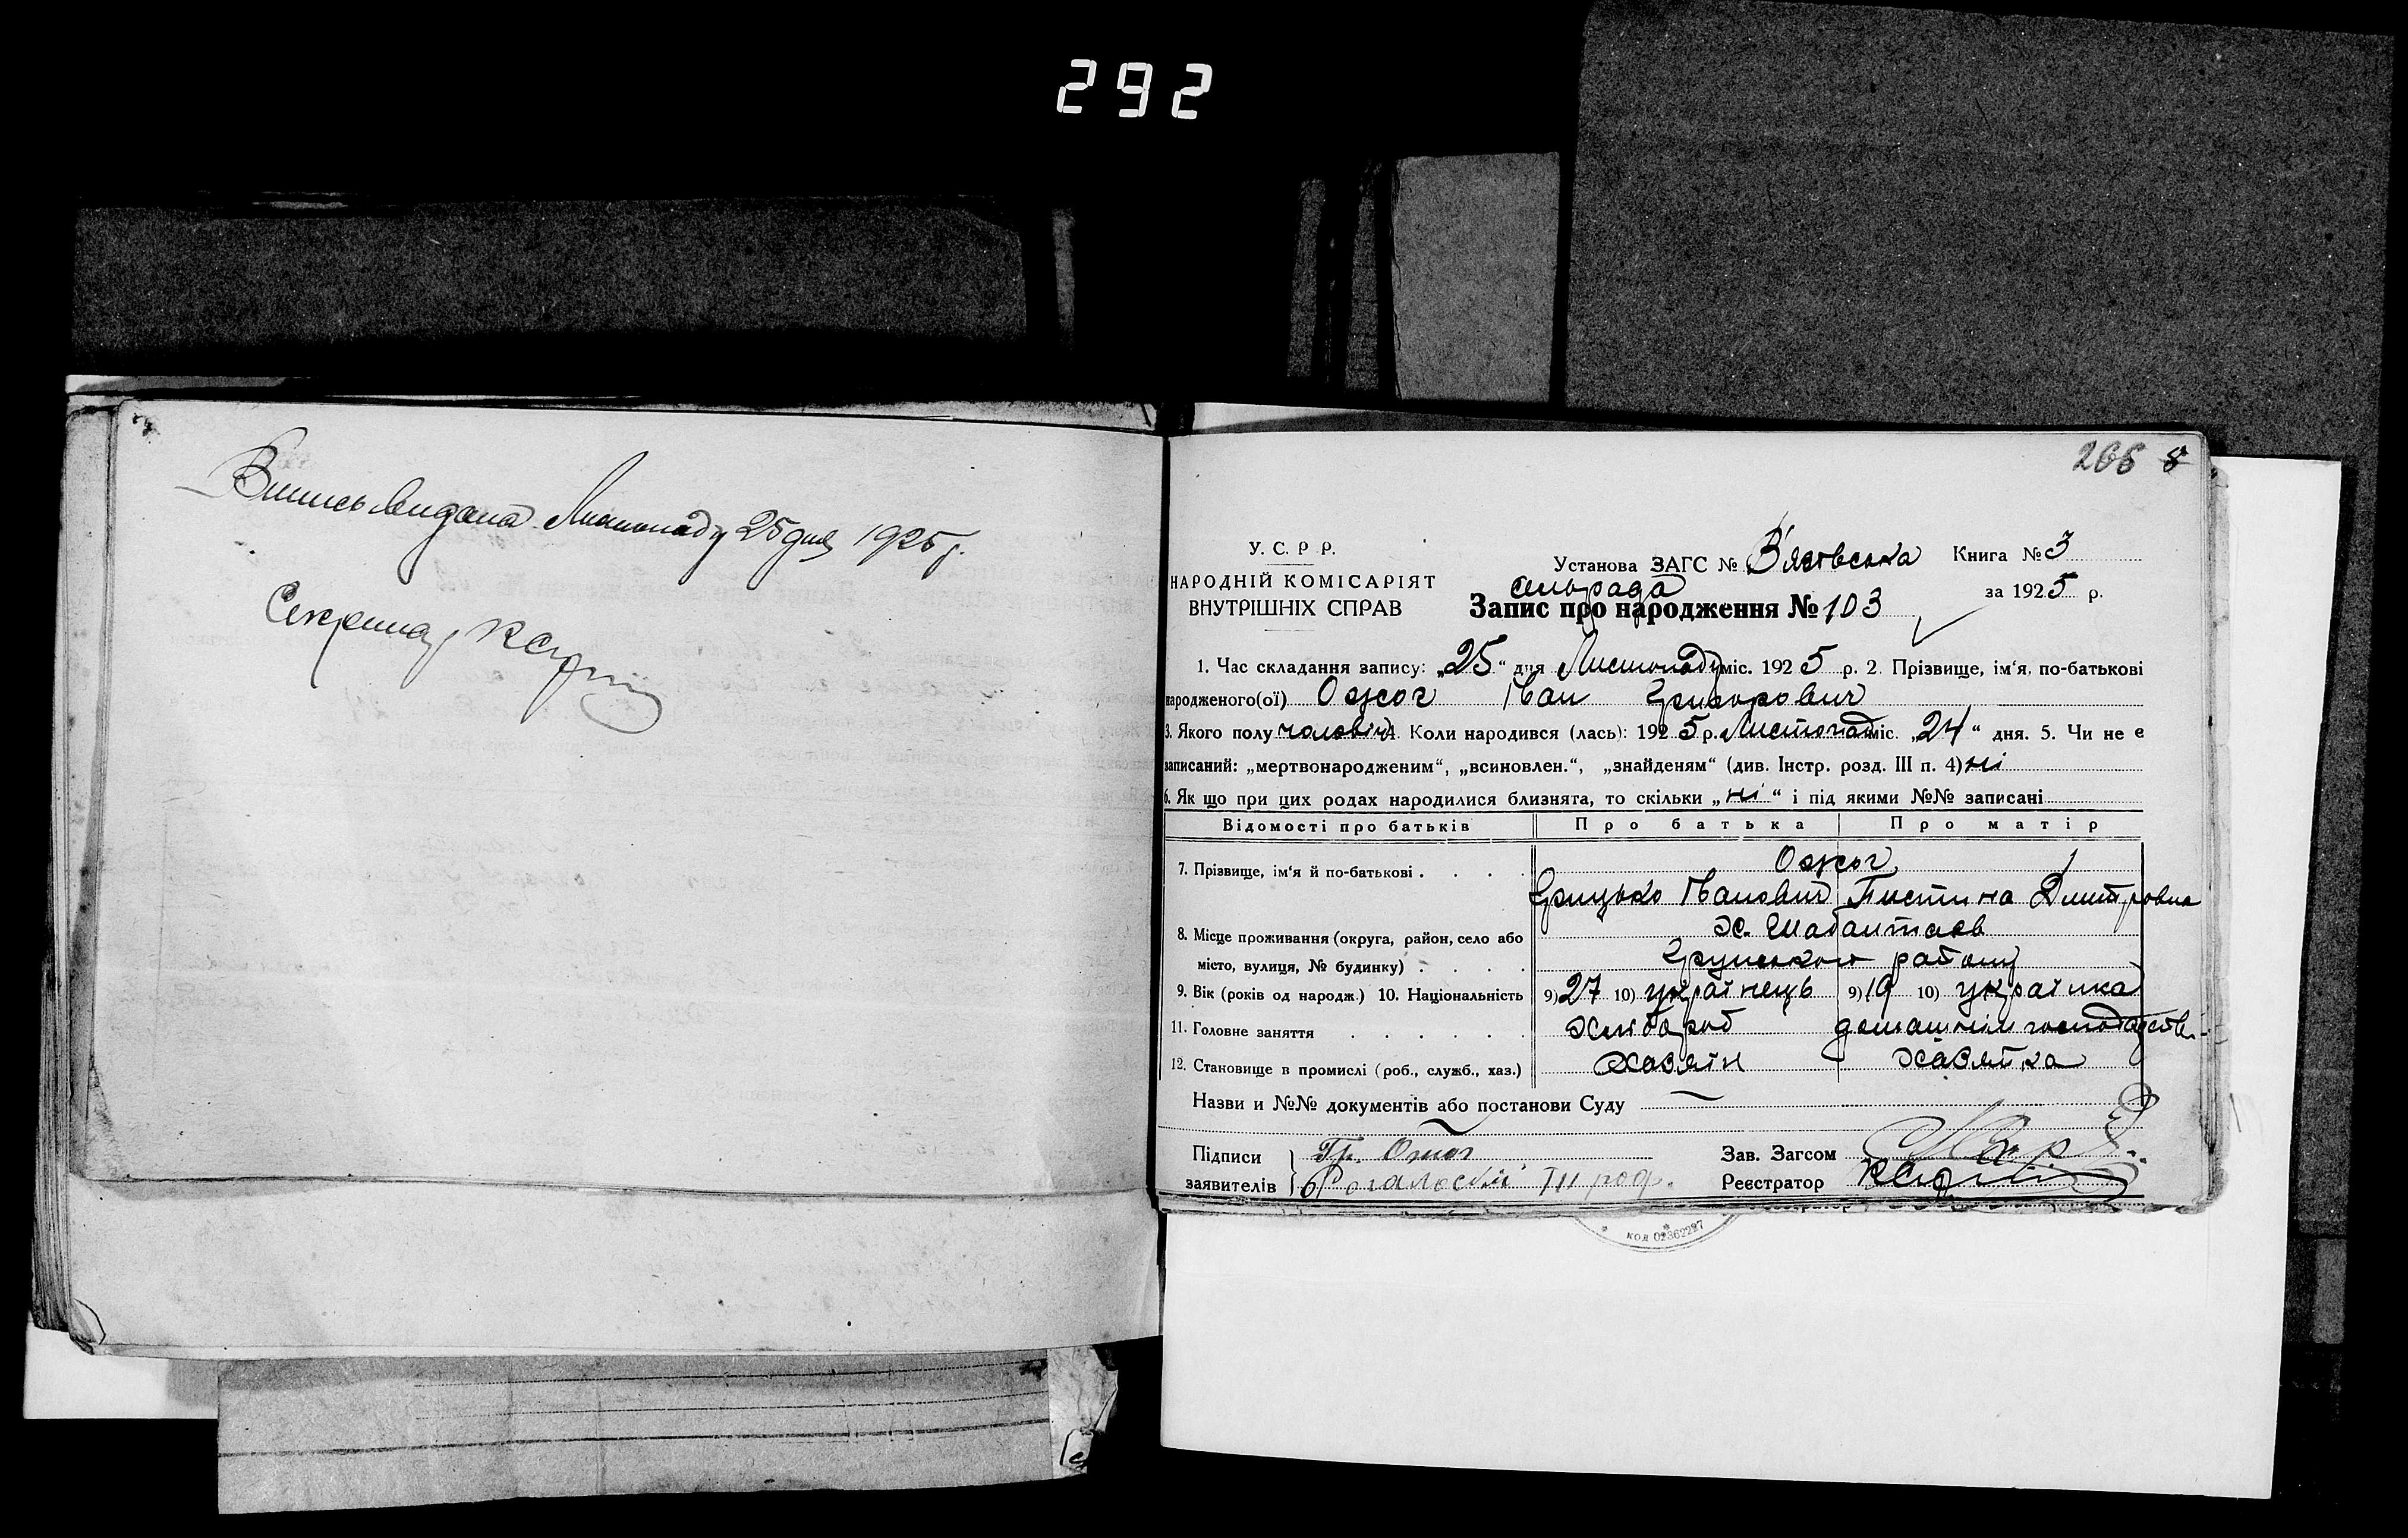 292
Випись видана Листопаду 25 дня 1925 р.
Секретар
266 8
У. С. Р Р.
НАРОДНІЙ КОМІСАРІЯТ
ВНУТРІШНІХ СПРАВ
Установа ЗАГС № В'язівська Книга № 3
сільрада
за 1925 р.
Запис про народження № 103
1. Час складання запису: „25“ дня Листопаду міс. 1925 р. 2. Прізвище, ім‘я, по-батькові
народженого(ої) Ожог Іван Григорович
3. Якого полу чоловіч. 4. Коли народився (лась): 1925 р. Листопад міс. „24“ дня. 5. Чи не є
записаний: „мертвонародженим“, „всиновлен.“, „знайденям“ (див. Інстр. розд. III п. 4) ні
6. Як що при цих родах народилися близнята, то скільки „ні“ і під якими №№ записані
Відомості про батьків Про батька Про матір
7. Прізвище, ім‘я й по-батькові . . . . Ожог
Грицько Іванович Пистина Дмитровна
8. Місце проживання (округа, район, село або х.
місто, вулиця, № будинку) . . . . Грунського району
9. Вік (років од народж.) 10. Національність 9) 27 10) українець 9) 19 10) українка
11. Головне заняття . . . . . . Хлібороб домашнім господарств.
12. Становище в промислі (роб., служб., хаз.) Хазяїн Хазяйка
Назви и №№ документів або постанови Суду
Підписи Гр. Ожог Зав. Загсом
заявителів Реєстратор
код 02362287